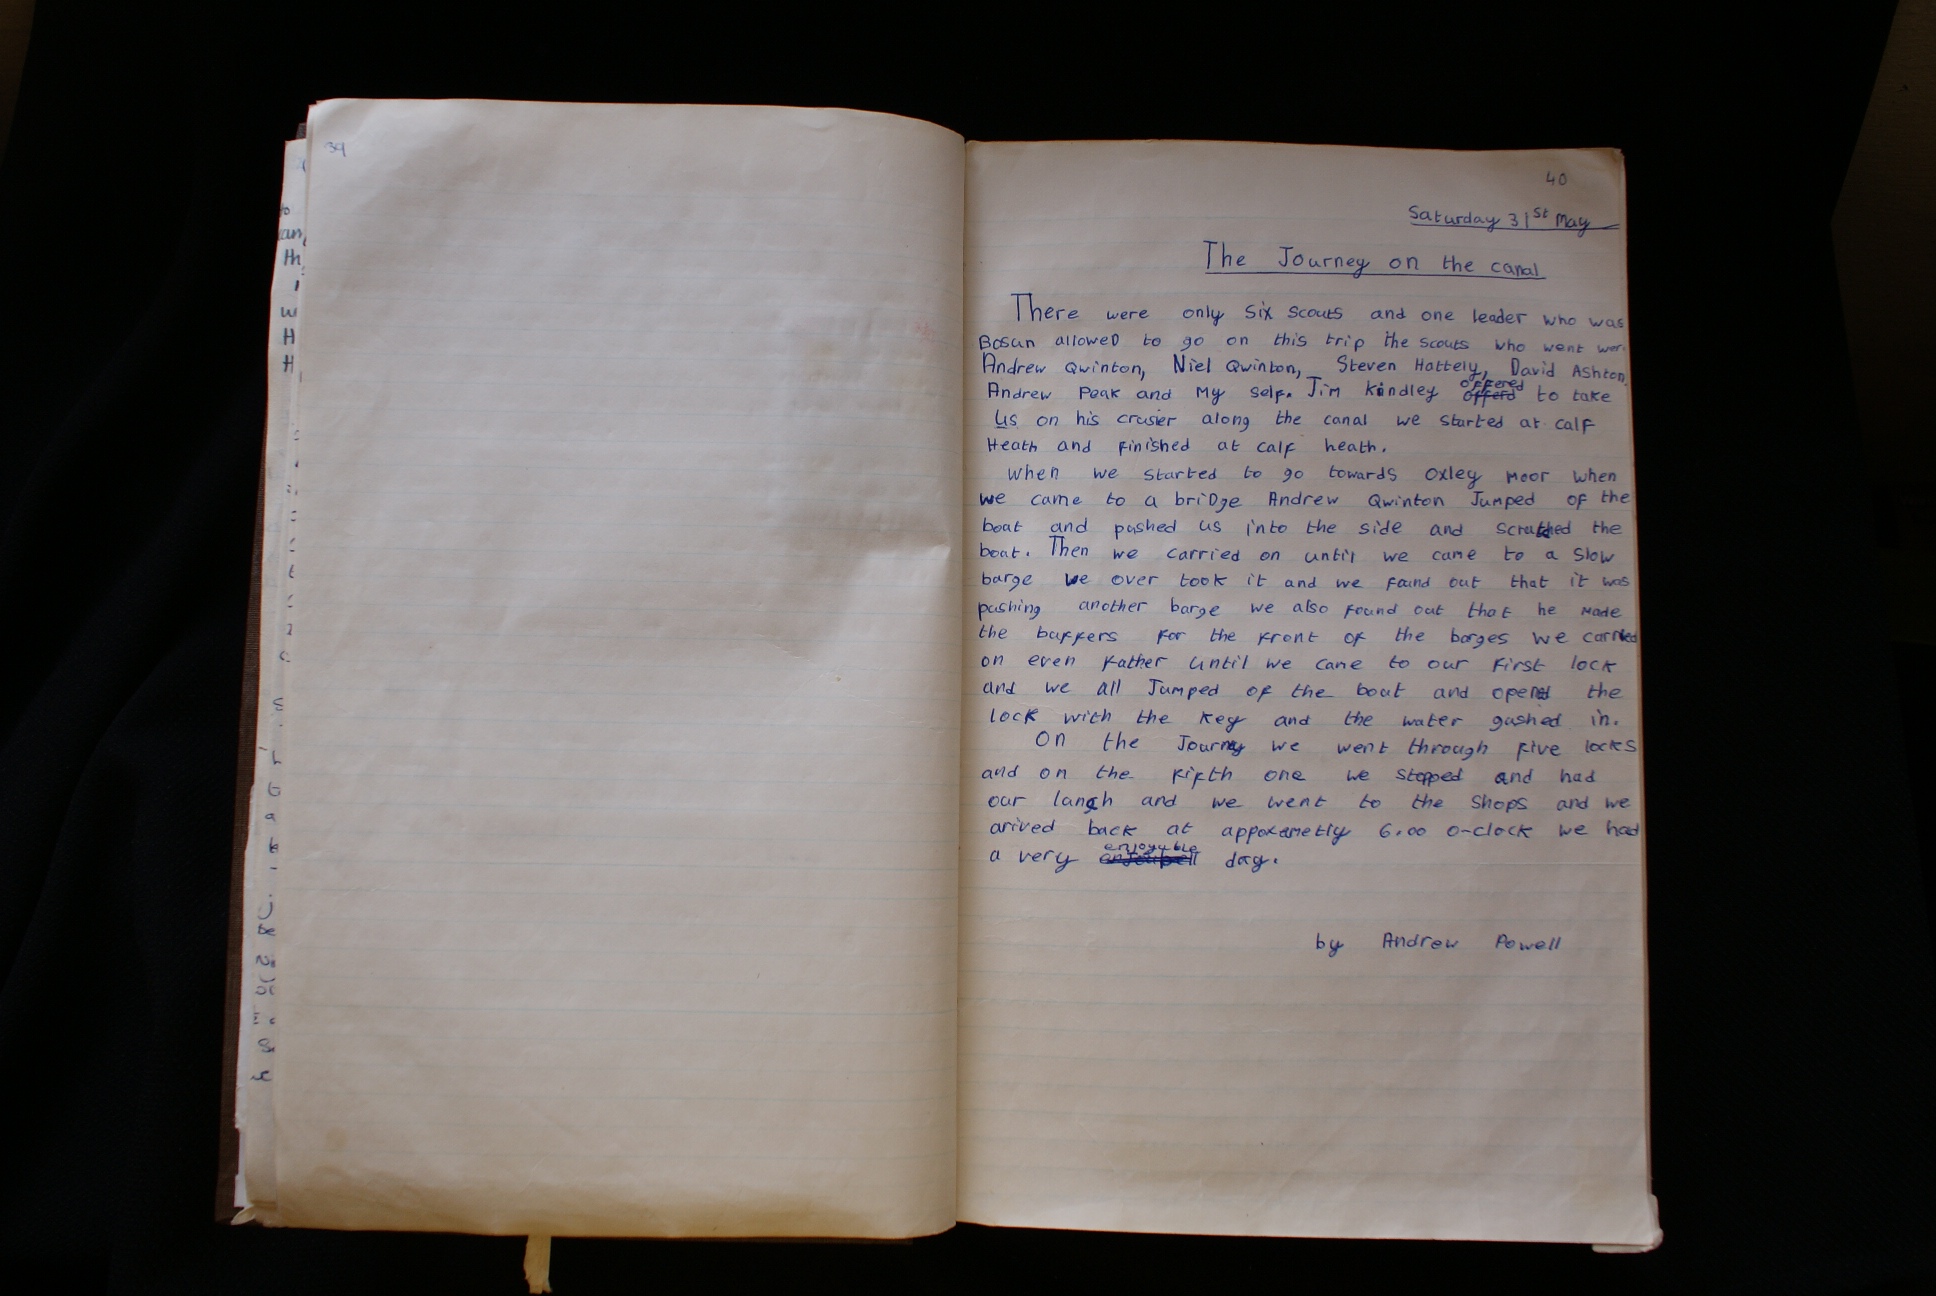 39
40
Saturday 31st May
The Journey on the canal
There were only six scouts and one leader who was
Bosun allowed to go on this trip the scouts who went wer
Andrew Qwinton, Niel Qwinton, Steven Hattely, David Ashton,
Andrew Peak and My self. Jim Kindley offered offerd to take
us on his crusier along the canal we started at calf
Heath and finished at calf heath.
When we started to go towards Oxley Moor when
we came to a briDge Andrew Qwinton Jumped of the
boat and pushed us into the side and scratched the
boat. Then we carried on until we came to a slow
barge we over took it and we found out that it was
pushing another barge we also found out that he made
the buffers for the front of the barges we carried
on even father until we came to our first lock
and we all Jumped of the boat and opened the
lock with the key and the water gushed in.
On the Journey we went through five locks
and on the fifth one we stopped and had
our lanch and we went to the shops and we
arived back at appoxametly 6.00 o-clock we had
a very enjoyable day.
by Andrew Powell